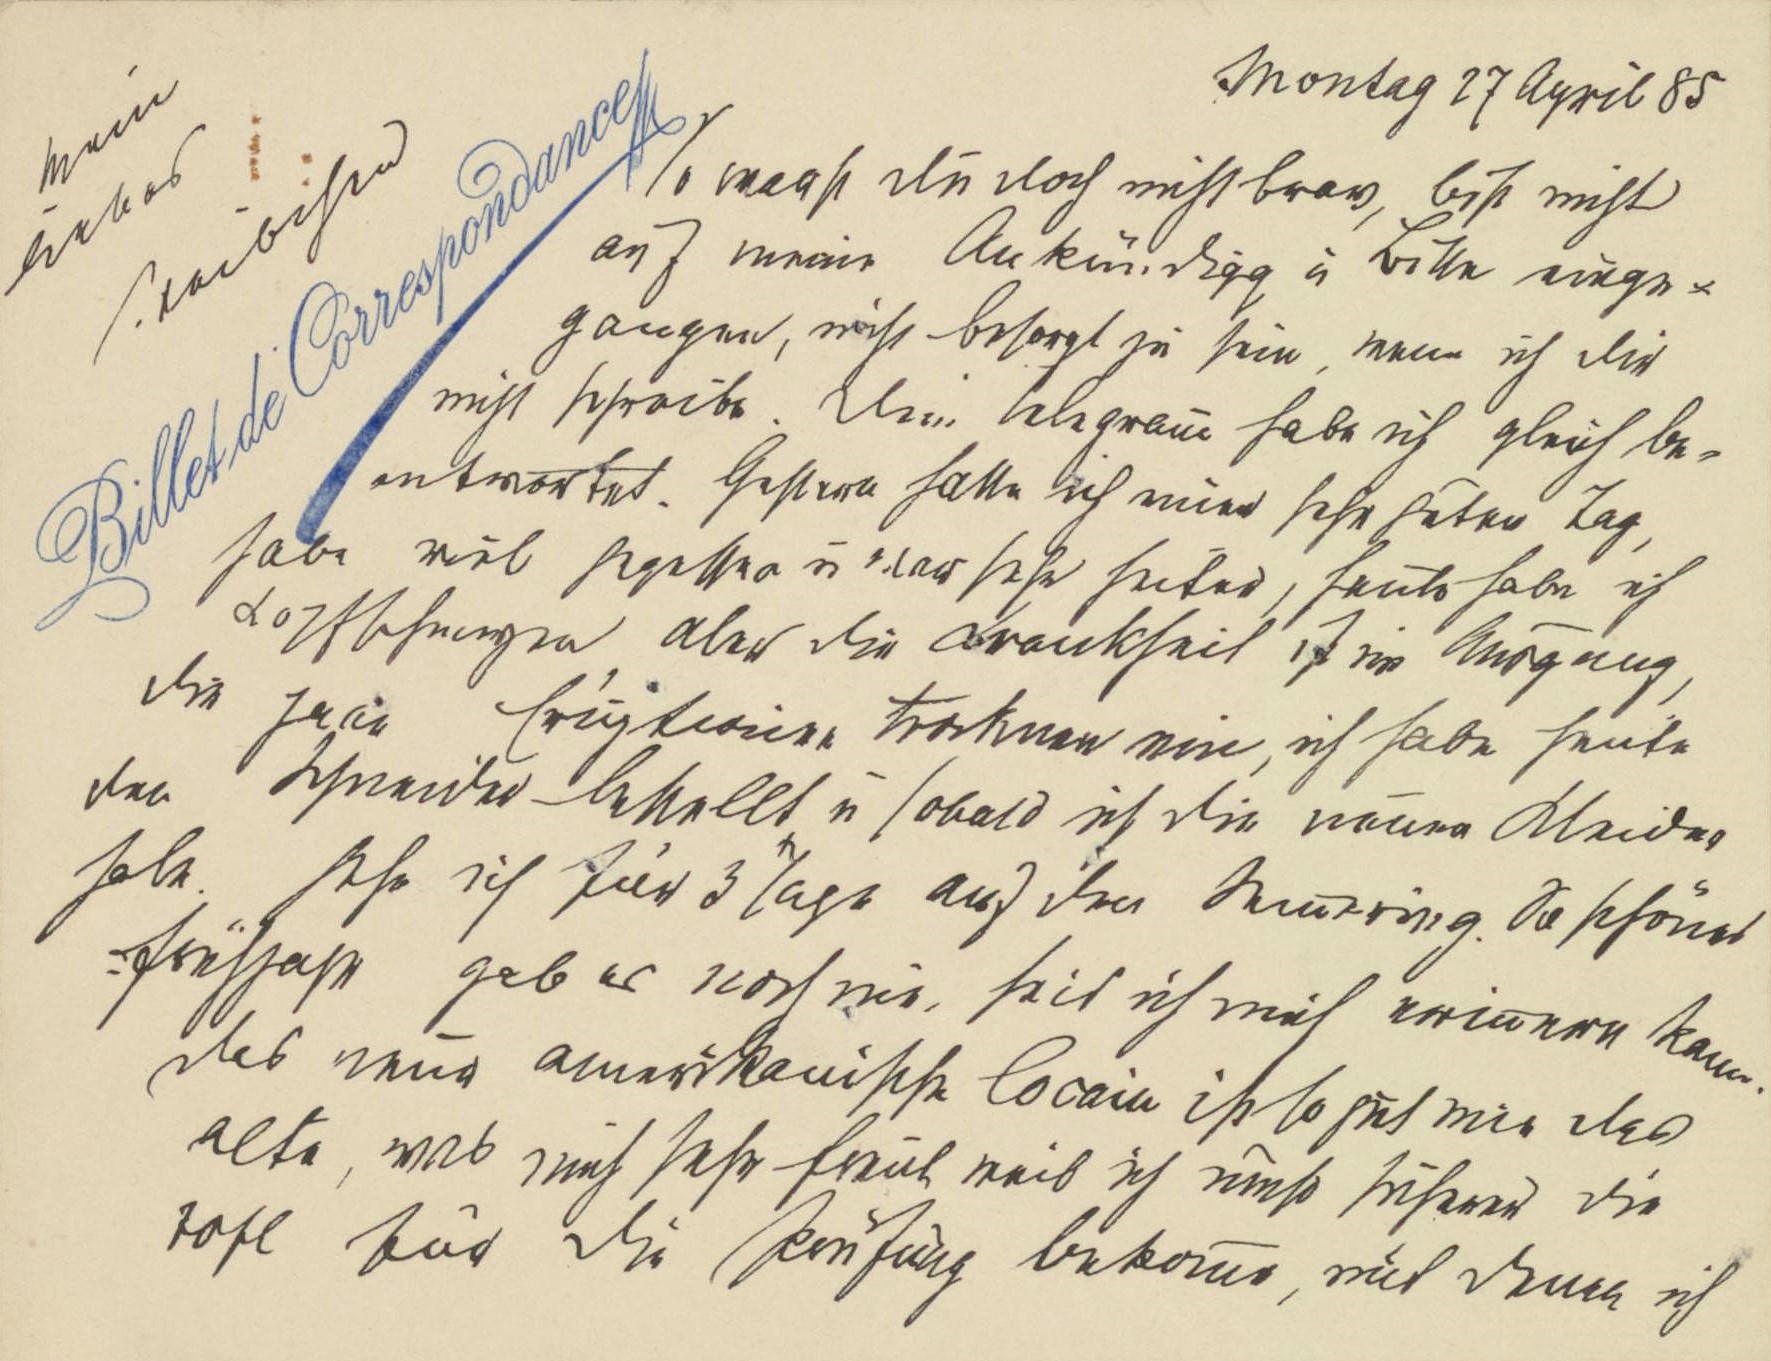 Montag 27 April 85
Mein
liebes
Weibchen
Billet de Correspondance
So warst Du doch nicht brav, bist nicht
auf meine Ankündigg u Bitte einge-
gangen, nicht besorgt zu sein, wenn ich Dir
nicht schreibe. Dein Telegram̄ habe ich gleich be-
antwortet. Gestern hatte ich einen sehr guten Tag,
habe viel gegessen u war sehr heiter, heute habe ich
Kopfschmerzen, aber die Krankheit ist im Ausgang,
die Eruptionen trocknen ein, ich habe heute
den Schneider bestellt u sobald ich die neuen Kleider
habe, gehe ich für 3 Tage auf den Sem̄ering. So schönes
Frühjahr gab es noch nie, seit ich mich erin̄ern kann.
Das neue amerikanische Cocain ist so gut wie das
alte, was mich sehr freut weil ich umso sicherer die
für die Prüfung bekom̄e, mit denen ich